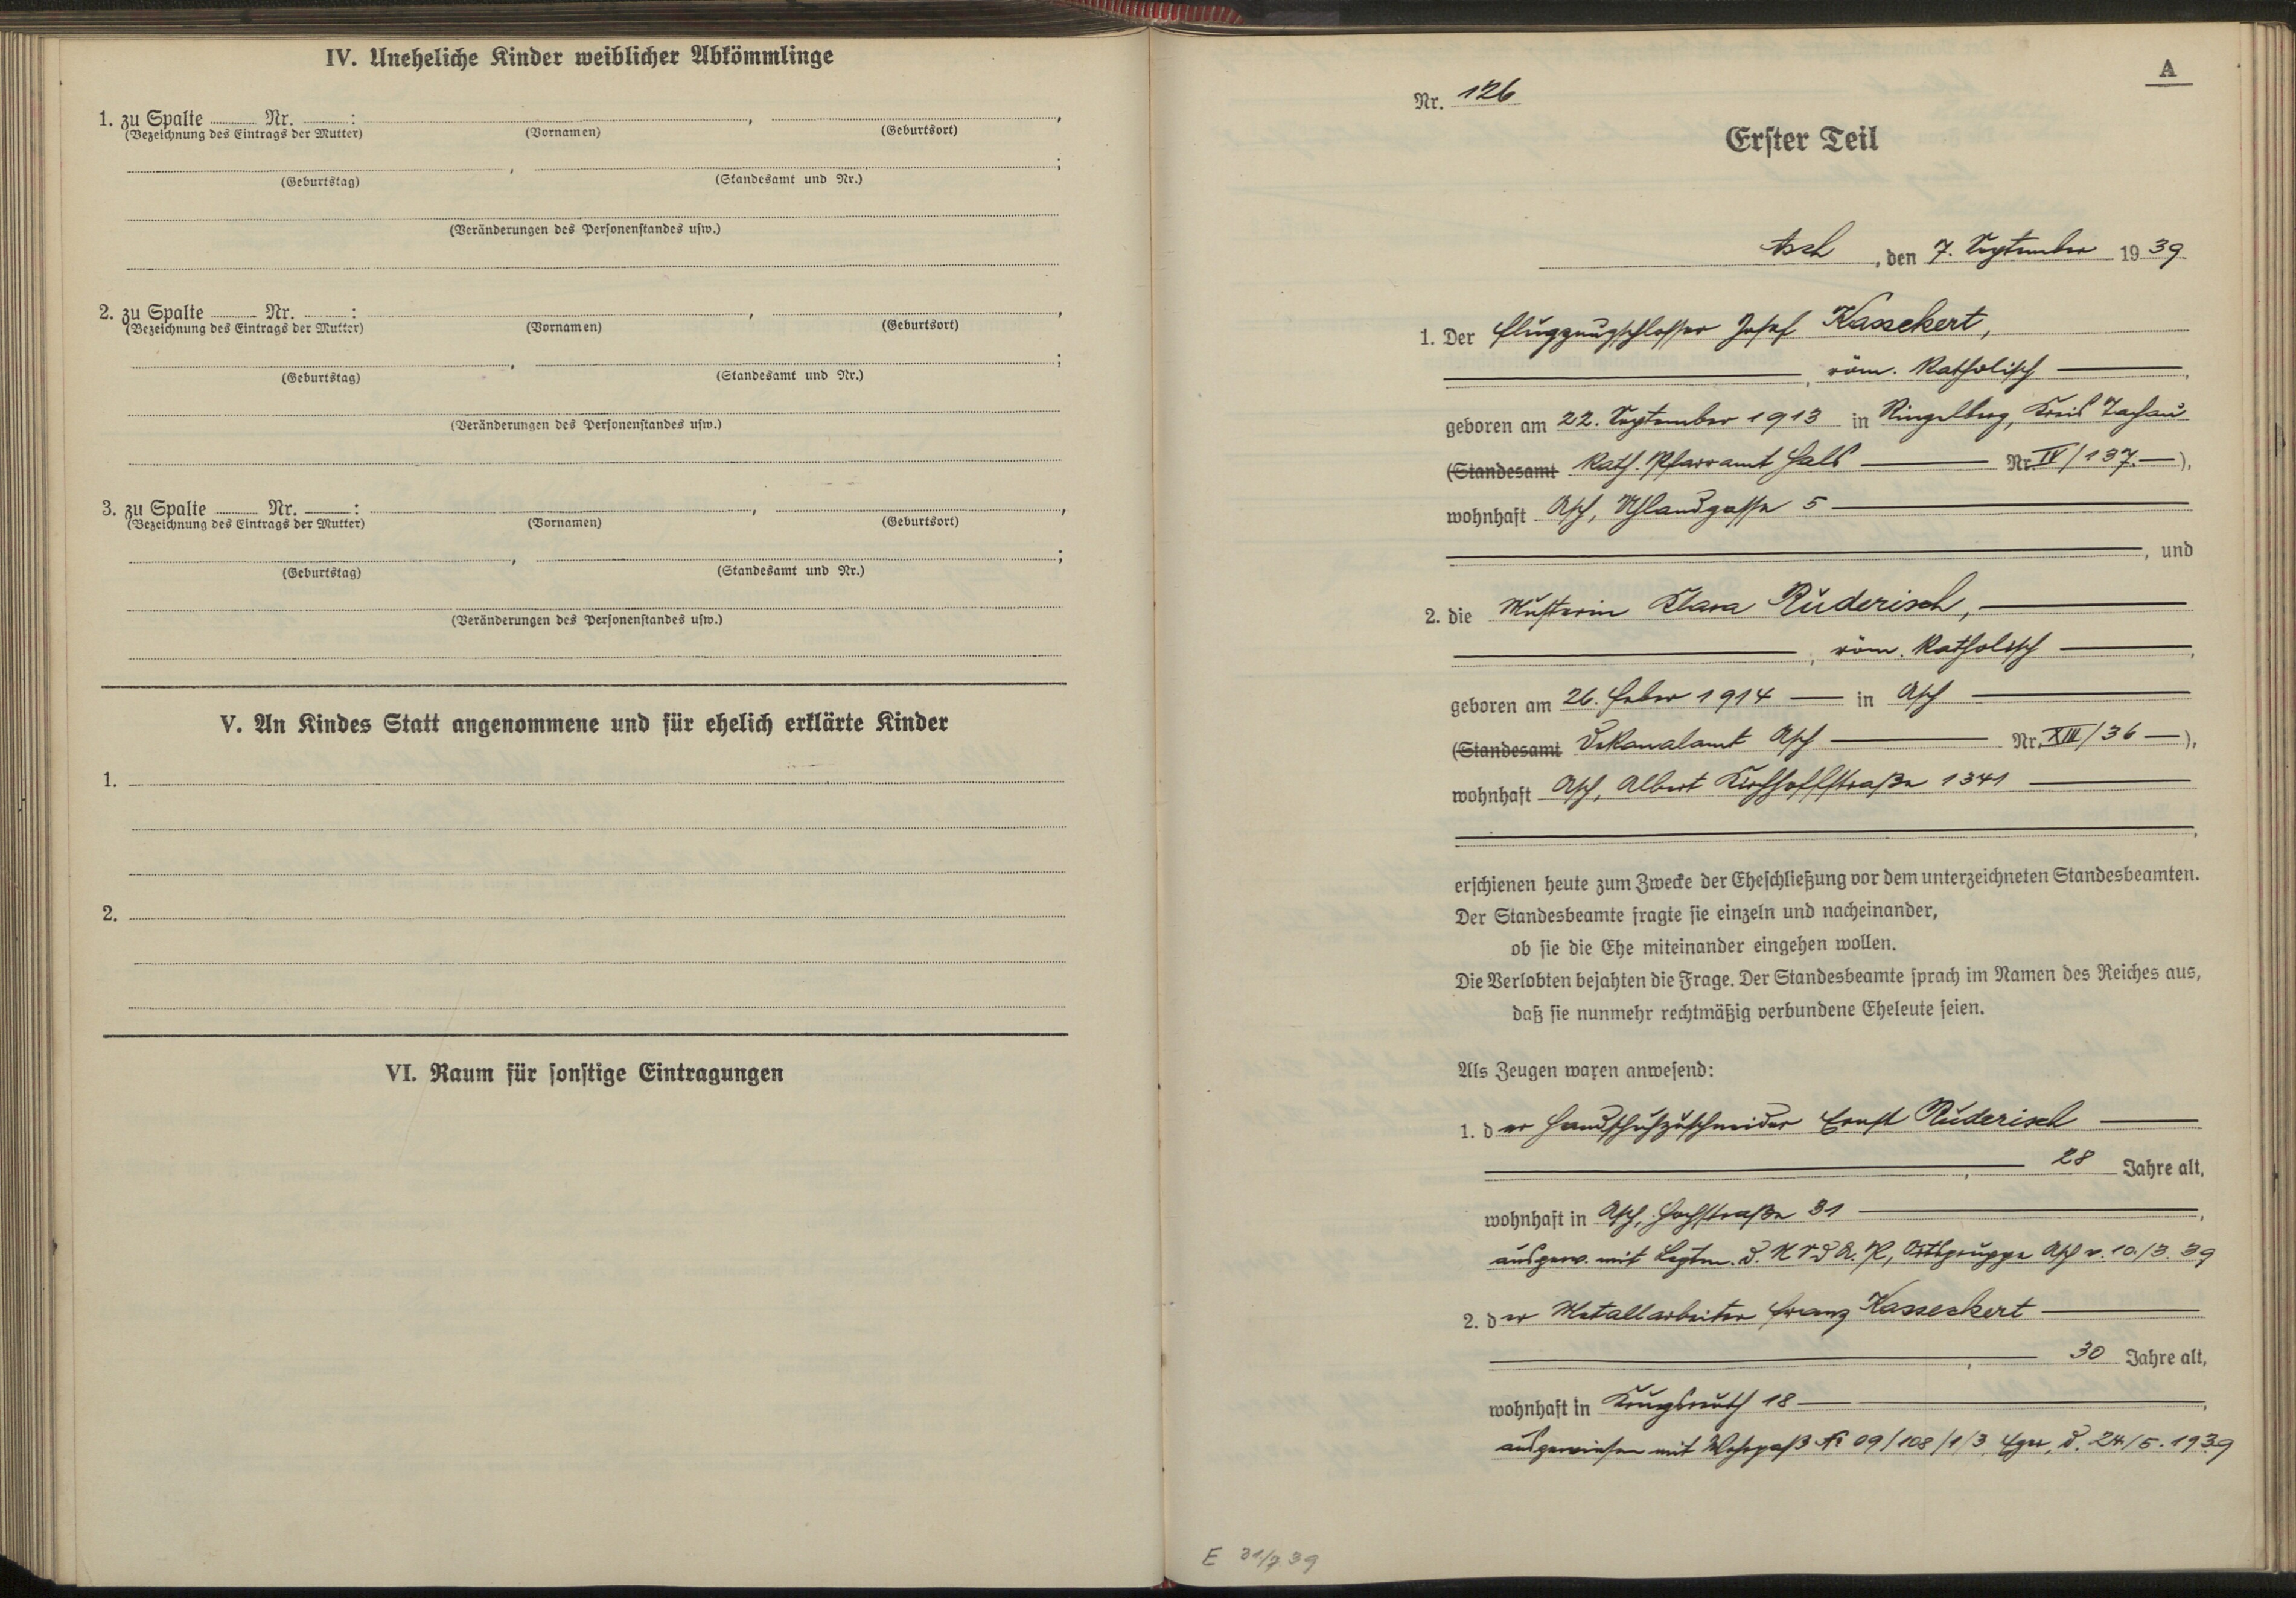 IV. Uneheliche Kinder weiblicher Abkömmlinge
1. zu Spalte Nr. : , ,
(Bezeichnung des Eintrags der Mutter) (Vornamen) (Geburtsort)
, ;
(Geburtstag) (Standesamt und Nr.)
(Veränderungen des Personenstandes usw.)
2. zu Spalte Nr. : , ,
(Bezeichnung des Eintrags der Mutter) (Vornamen) (Geburtsort)
, ;
(Geburtstag) (Standesamt und Nr.)
(Veränderungen des Personenstandes usw.)
3. zu Spalte Nr. : , ,
(Bezeichnung des Eintrags der Mutter) (Vornamen) (Geburtsort)
, ;
(Geburtstag) (Standesamt und Nr.)
(Veränderungen des Personenstandes usw.)
V. An Kindes Statt angenommene und für ehelich erklärte Kinder
1.
2.
VI. Raum für sonstige Eintragungen
A
Nr. 126
Erster Teil
Asch, den 7. September 1939
1. Der Flugzeugschlosser Josef Kassekert,
, röm. katholisch,
geboren am 22. September 1913 in Ringelberg, Kreis Tachau
(Standesamt Kath. Pfarramt Hals Nr. IV/137.),
wohnhaft Asch, Uhlandgasse 5
, und
2. die Musterin Klara Ruderisch,
, röm. katholisch,
geboren am 26. Feber 1914 in Asch
(Standesamt Dekanalamt Asch Nr. XIII/36),
wohnhaft Asch, Albert Kirchhoffstraße 1341
,
erschienen heute zum Zwecke der Eheschließung vor dem unterzeichneten Standesbeamten.
Der Standesbeamte fragte sie einzeln und nacheinander,
ob sie die Ehe miteinander eingehen wollen.
Die Verlobten bejahten die Frage. Der Standesbeamte sprach im Namen des Reiches aus,
daß sie nunmehr rechtmäßig verbundene Eheleute seien.
Als Zeugen waren anwesend:
1. der Handschuhzuschneider Ernst Ruderisch
, 28 Jahre alt,
wohnhaft in Asch, Hochstraße 31,
ausgew. mit Legtm. d. Ortsgruppe Asch v. 10./3. 39
2. der Metallarbeiter Franz Kasseckert
, 30 Jahre alt,
wohnhaft in Krugsreuth 18,
ausgewiesen mit Wehrpaß № 09/108/1/3, Eger, d. 24/5. 1939
E 31/7 39